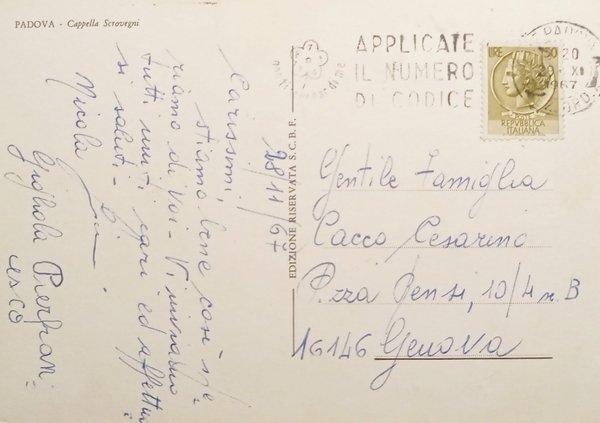 PADOVA - Cappella Scrovegni
28/11/67
Carissimi,
stiamo bene così spe
riamo di Voi - Vi inviamo
tutti uniti cari ed affettuo
si saluti -
Nicola
Pierfran
cesco
EDIZIONE RISERVATA S.C.B.F.
APPLICATE
IL NUMERO
DI CODICE
PADOVA
20
XI
1967
LIRE 50
REPUBBLICA
ITALIANA
Gentile Famiglia
Cacco Cesarino
P.zza Gensi, 10/4 n. B
16146 Genova